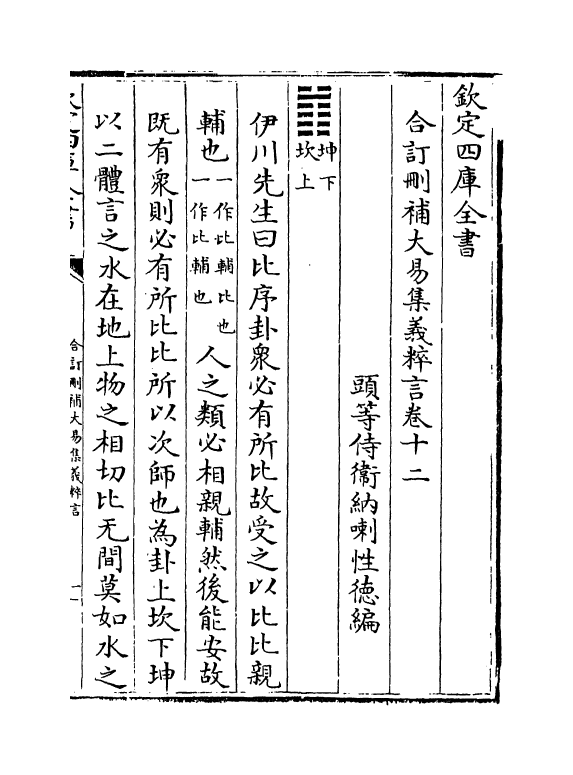 欽定四庫全書
合訂刪補大易集義粹言卷十二
頭等侍衛納喇性德編
坤下
坎上
伊川先生曰比序卦衆必有所比故受之以比比親
輔也一作比輔比也一作比輔也人之類必相親輔然後能安故
既有衆則必有所比比所以次師也為卦上坎下坤
以二體言之水在地上物之相切比无間莫如水之
合訂刪補大易集義粹言
一